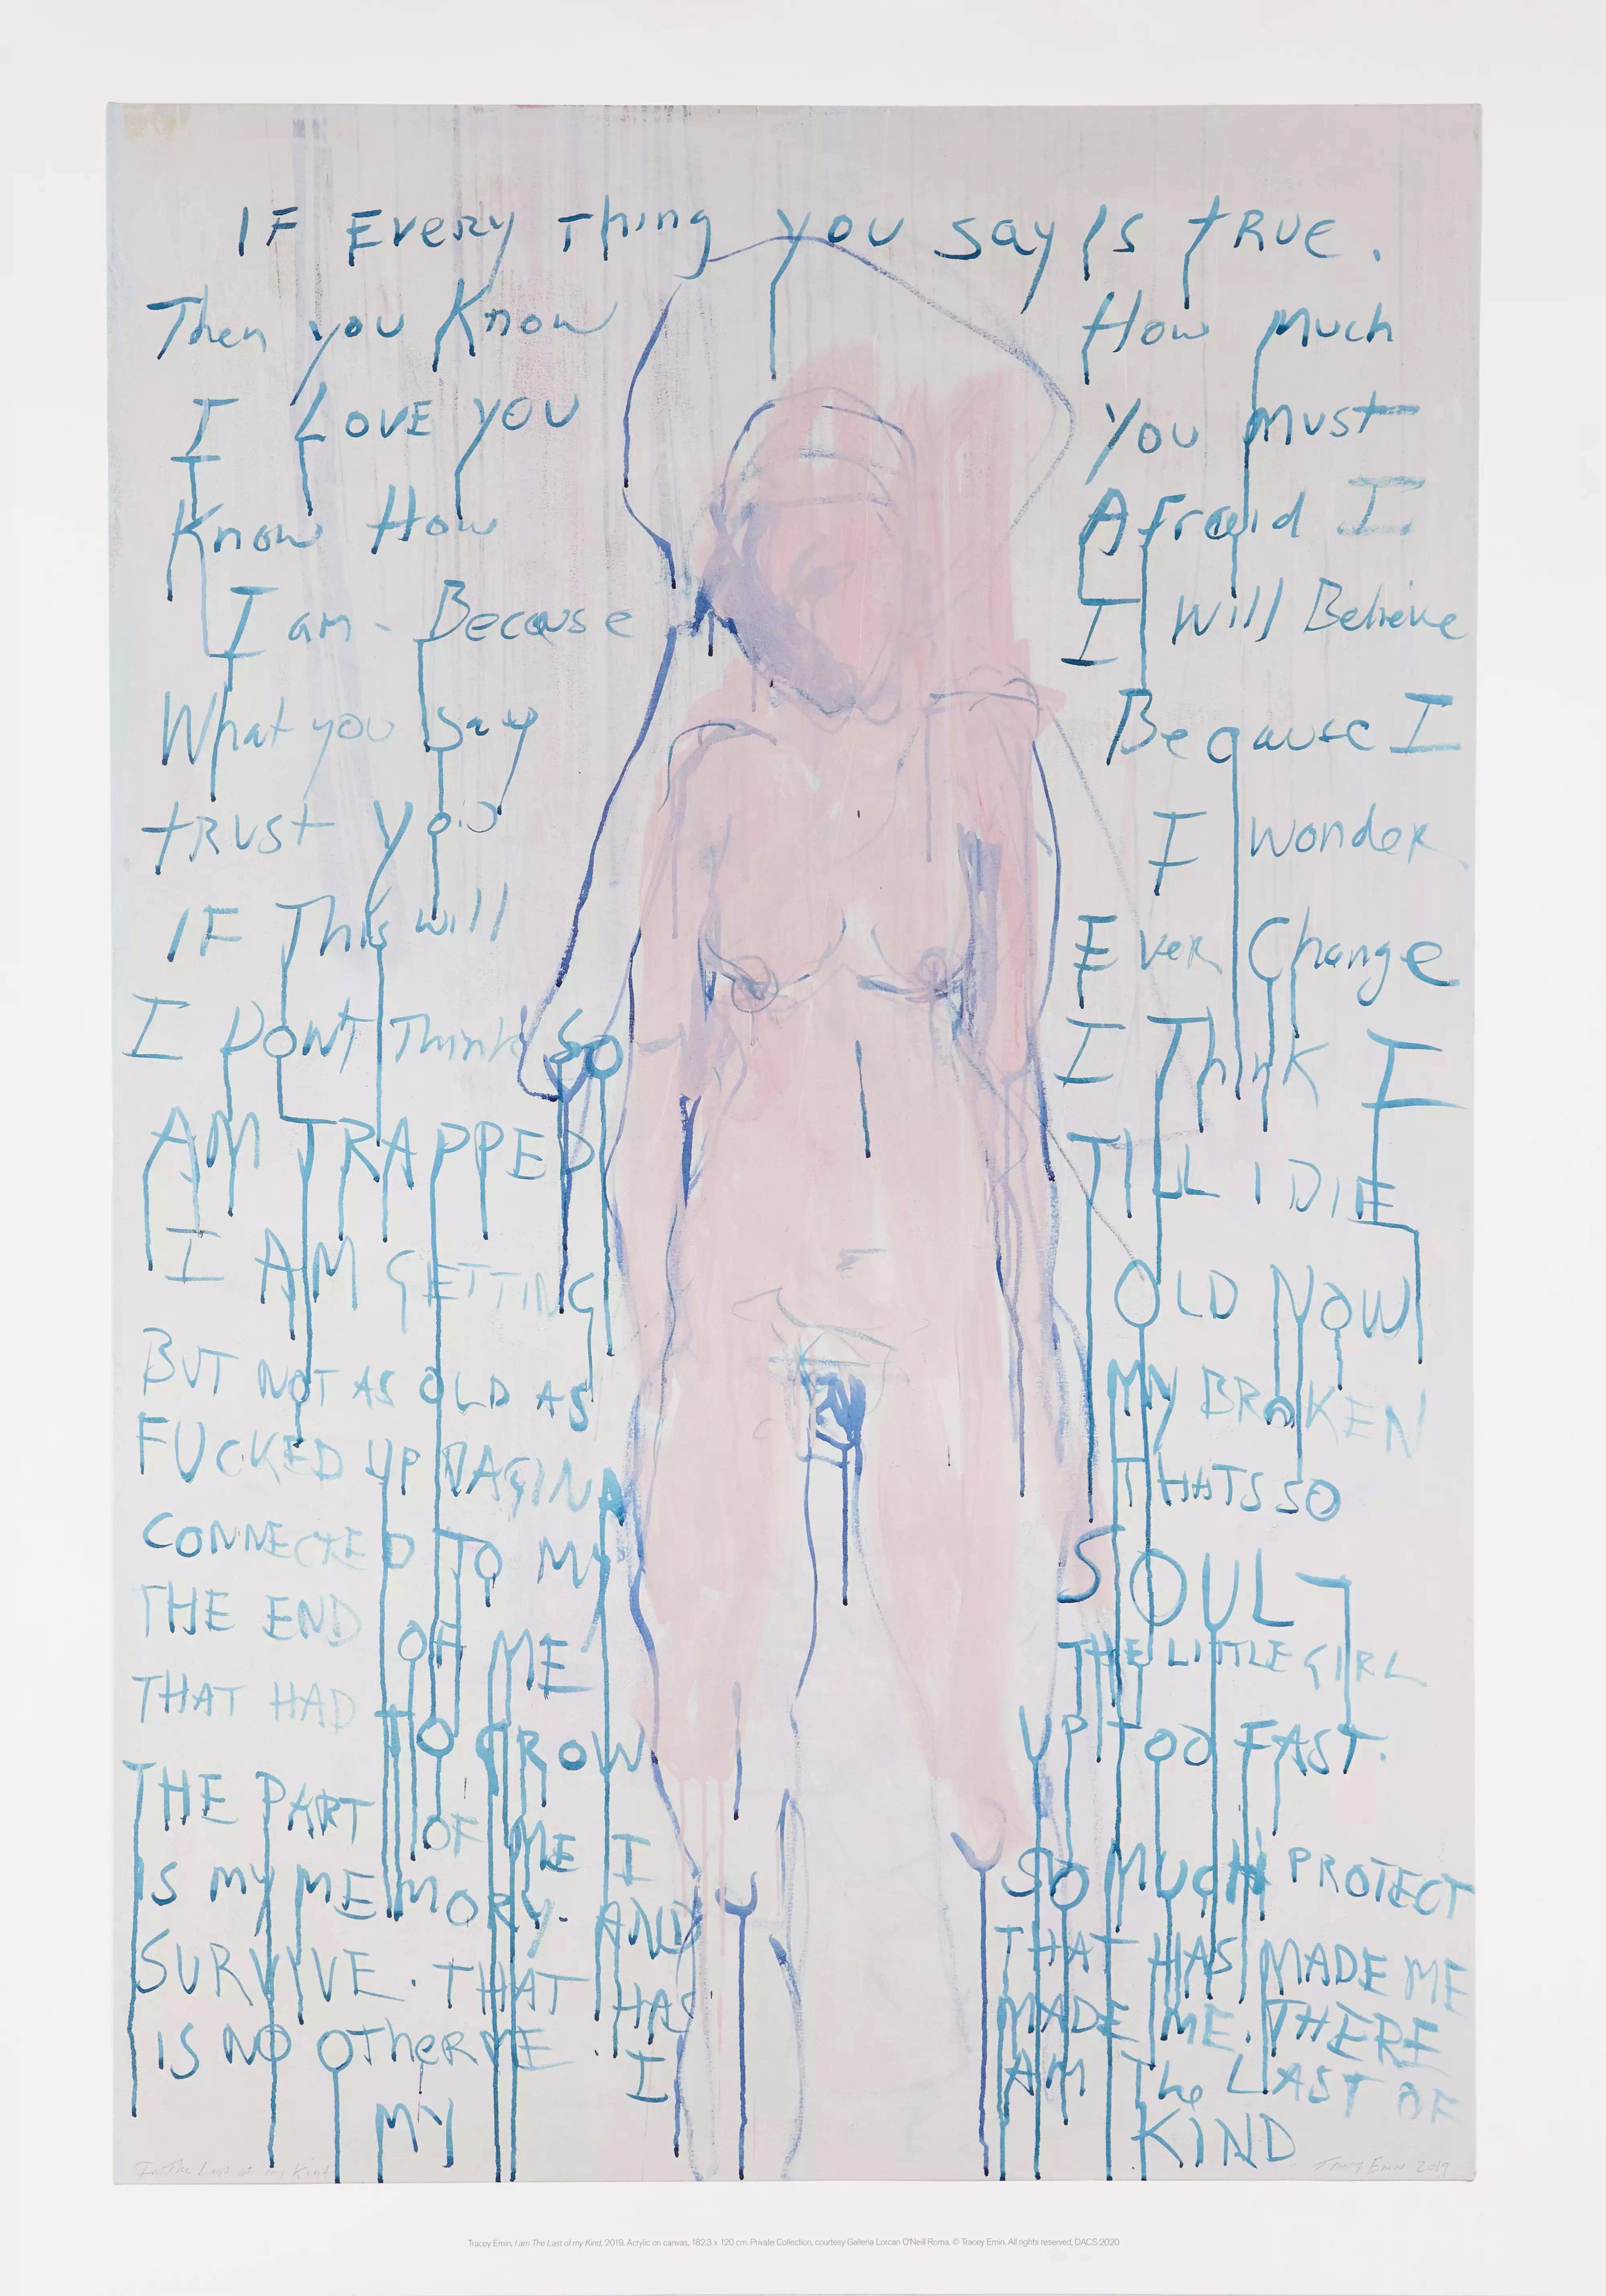 IF Every Thing you say Is tRUE.
Then you Know How Much
I LOVE YOU You Must
Know How Afraid I
I am - Because I Will Believe
What you Say Because I
tRUST you I wondeR
IF This will EveR Change
I DONT Think SO I ThinK I
AM TRAPPED TILL I DIE
I AM GETTING OLD NOW
BUT NOT AS OLD AS MY BROKEN
FUCKED UP VAGINA THATS SO
CONNECTED TO MY SOUL
THE END OF ME THE LITTLE GIRL
THAT HAD TO GROW UP TOO FAST.
THE PART OF ME I SO MUCH PROTECT
IS MY MEMORY. AND THAT HAS MADE ME
SURVIVE. THAT HAS MADE ME. THERE
IS NO OTheR ME. I AM The LAST OF
MY KIND
I am The Last of my Kind Tracey Emin 2019
Tracey Emin, I am The Last of my Kind, 2019. Acrylic on canvas, 182.3 x 120 cm. Private Collection, courtesy Galleria Lorcan O'Neill Roma. © Tracey Emin. All rights reserved, DACS 2020